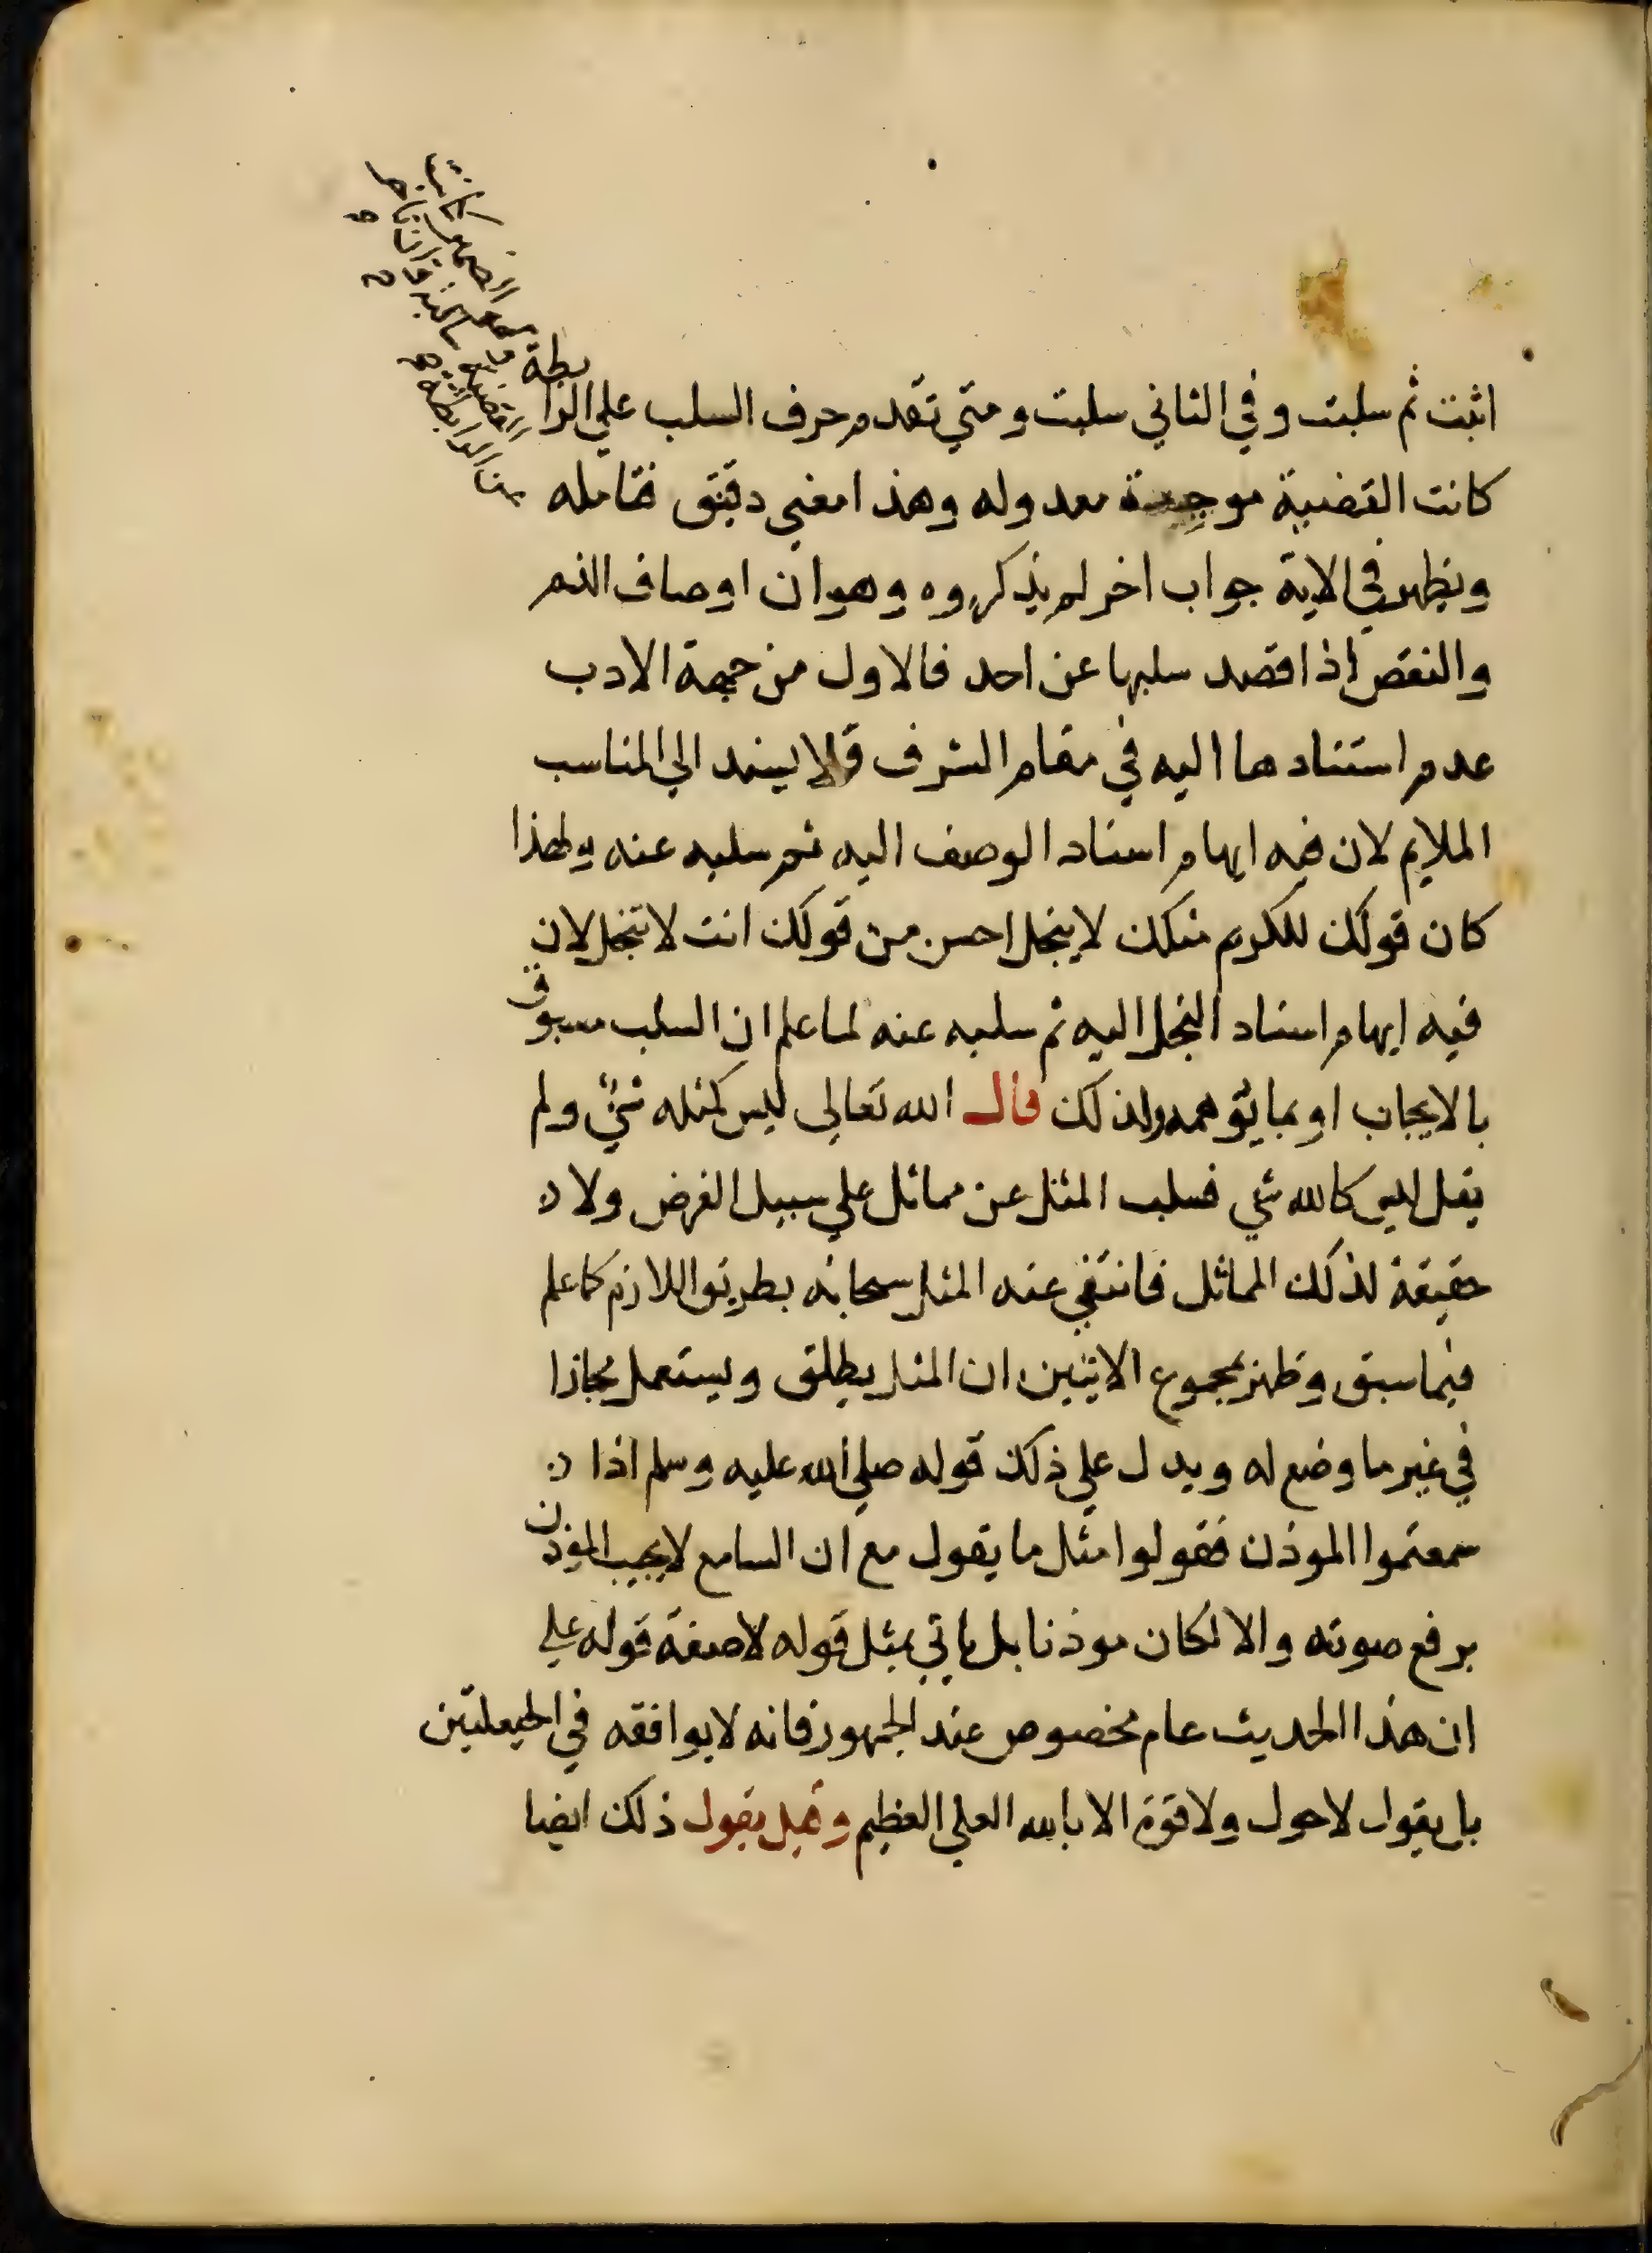 اثبت ثم سلبت وفي الثاني سلبت ومتي تقدم حرف السلب علي الرابطة
كانت القضية موجبة معدوله وهذا معني دقيق فتامله
ويظهر في الاية جواب اخر لم يذكروه وهو ان اوصاف الذم
والنقص اذا قصد سلبها عن احد فالاول من جهة الادب
عدم استنادها اليه في مقام الشرف فلا يسند الي المناسب
الملايم لان فيه ايهام اسناد الوصف اليه ثم سلبه عنه ولهذا
كان قولك للكريم مثلك لا يبخل احسن من قولك انت لا تبخل لان
فيه ايهام اسناد البخل اليه ثم سلبه عنه لما علم ان السلب مسبوق
بالايجاب او بما يتوهمه ولذلك قال الله تعالي ليس كمثله شئ ولم
يقل ليس كالله شي فسلب المثل عن مماثل علي سبيل الفرض ولا
حقيقة لذلك المماثل فانتفي عنه المثل سبحانه بطريق اللازم كما علم
فيما سبق وظهر بمجموع الايتين ان المثل يطلق ويستعمل مجازا
في غير ما وضع له ويدل علي ذلك قوله صلي الله عليه وسلم اذا
سمعتموا الموذن فقولوا مثل ما يقول مع ان السامع لا يجيب الموذن
برفع صوته والا لكان موذنا بل ياتي بمثل قوله لا صفة قوله علي
ان هذا الحديث عام مخصوص عند الجمهور فانه لا يوافقه في الحيعلتين
بل يقول لا حول ولا قوة الا بالله العلي العظيم وقيل يقول ذلك ايضا
كانت
القضية
عن الرابطة